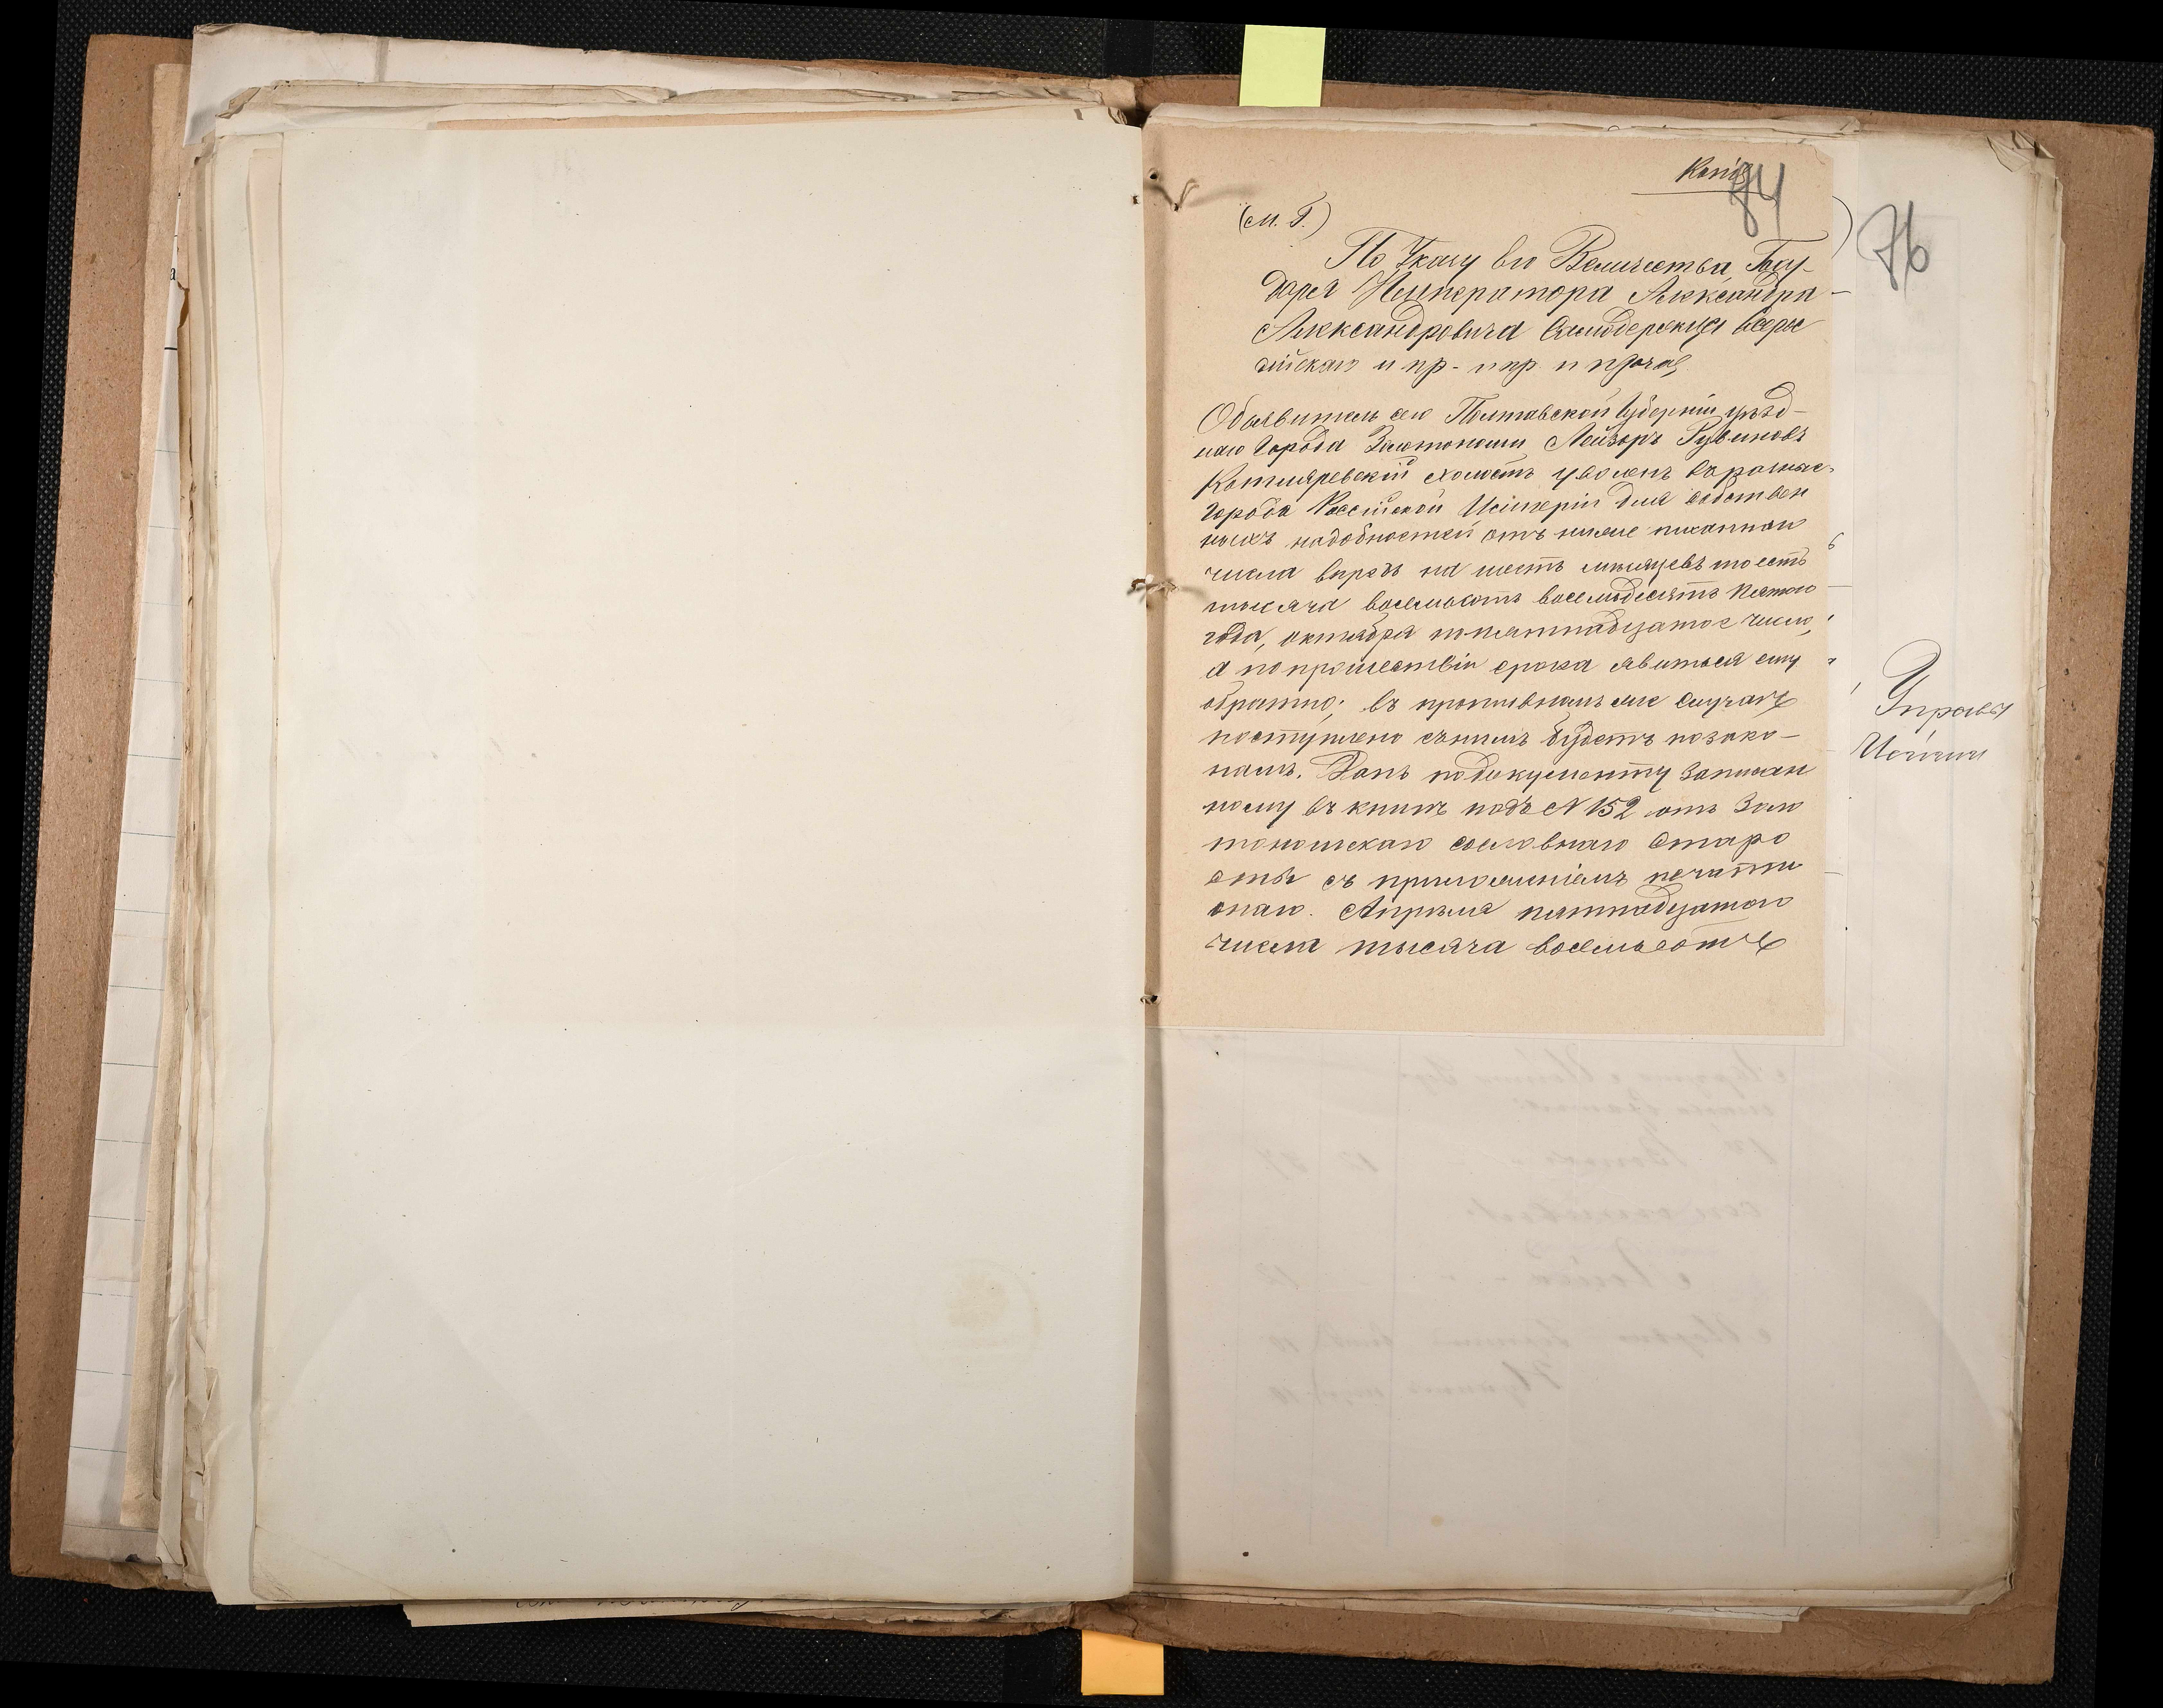 Копія
84
76
(М. Г.)
По Указу Его Величества, Госу-
даря Императора Александра
Александровича Самодержца Всеро
сійскаго и пр. и пр. и проч.
Объявитель сего Полтавской Губерніи уѣзд-
наго Города Золотоноши Лейзоръ Рувиновъ
Котляревскій холостъ уволенъ въ разные
Города Россійской Имперіи для собствен
ныхъ надобностей отъ ниже писаннаго
числа впредь на шесть мѣсяцевъ то есть
тысяча восемьсотъ восемьдесятъ пятого
года, октября по пятнадцатое число,
а по прошествіи срока явиться ему
обратно; въ противномъ же случаѣ
поступлено съ нимъ будетъ по зако-
намъ. Данъ по документу записан
ному въ книгѣ подъ № 152 отъ Золо
тоношскаго сословнаго Старо
сты съ приложеніемъ печати
онаго. Апрѣля пятнадцатого
числа тысяча восемьсотъ